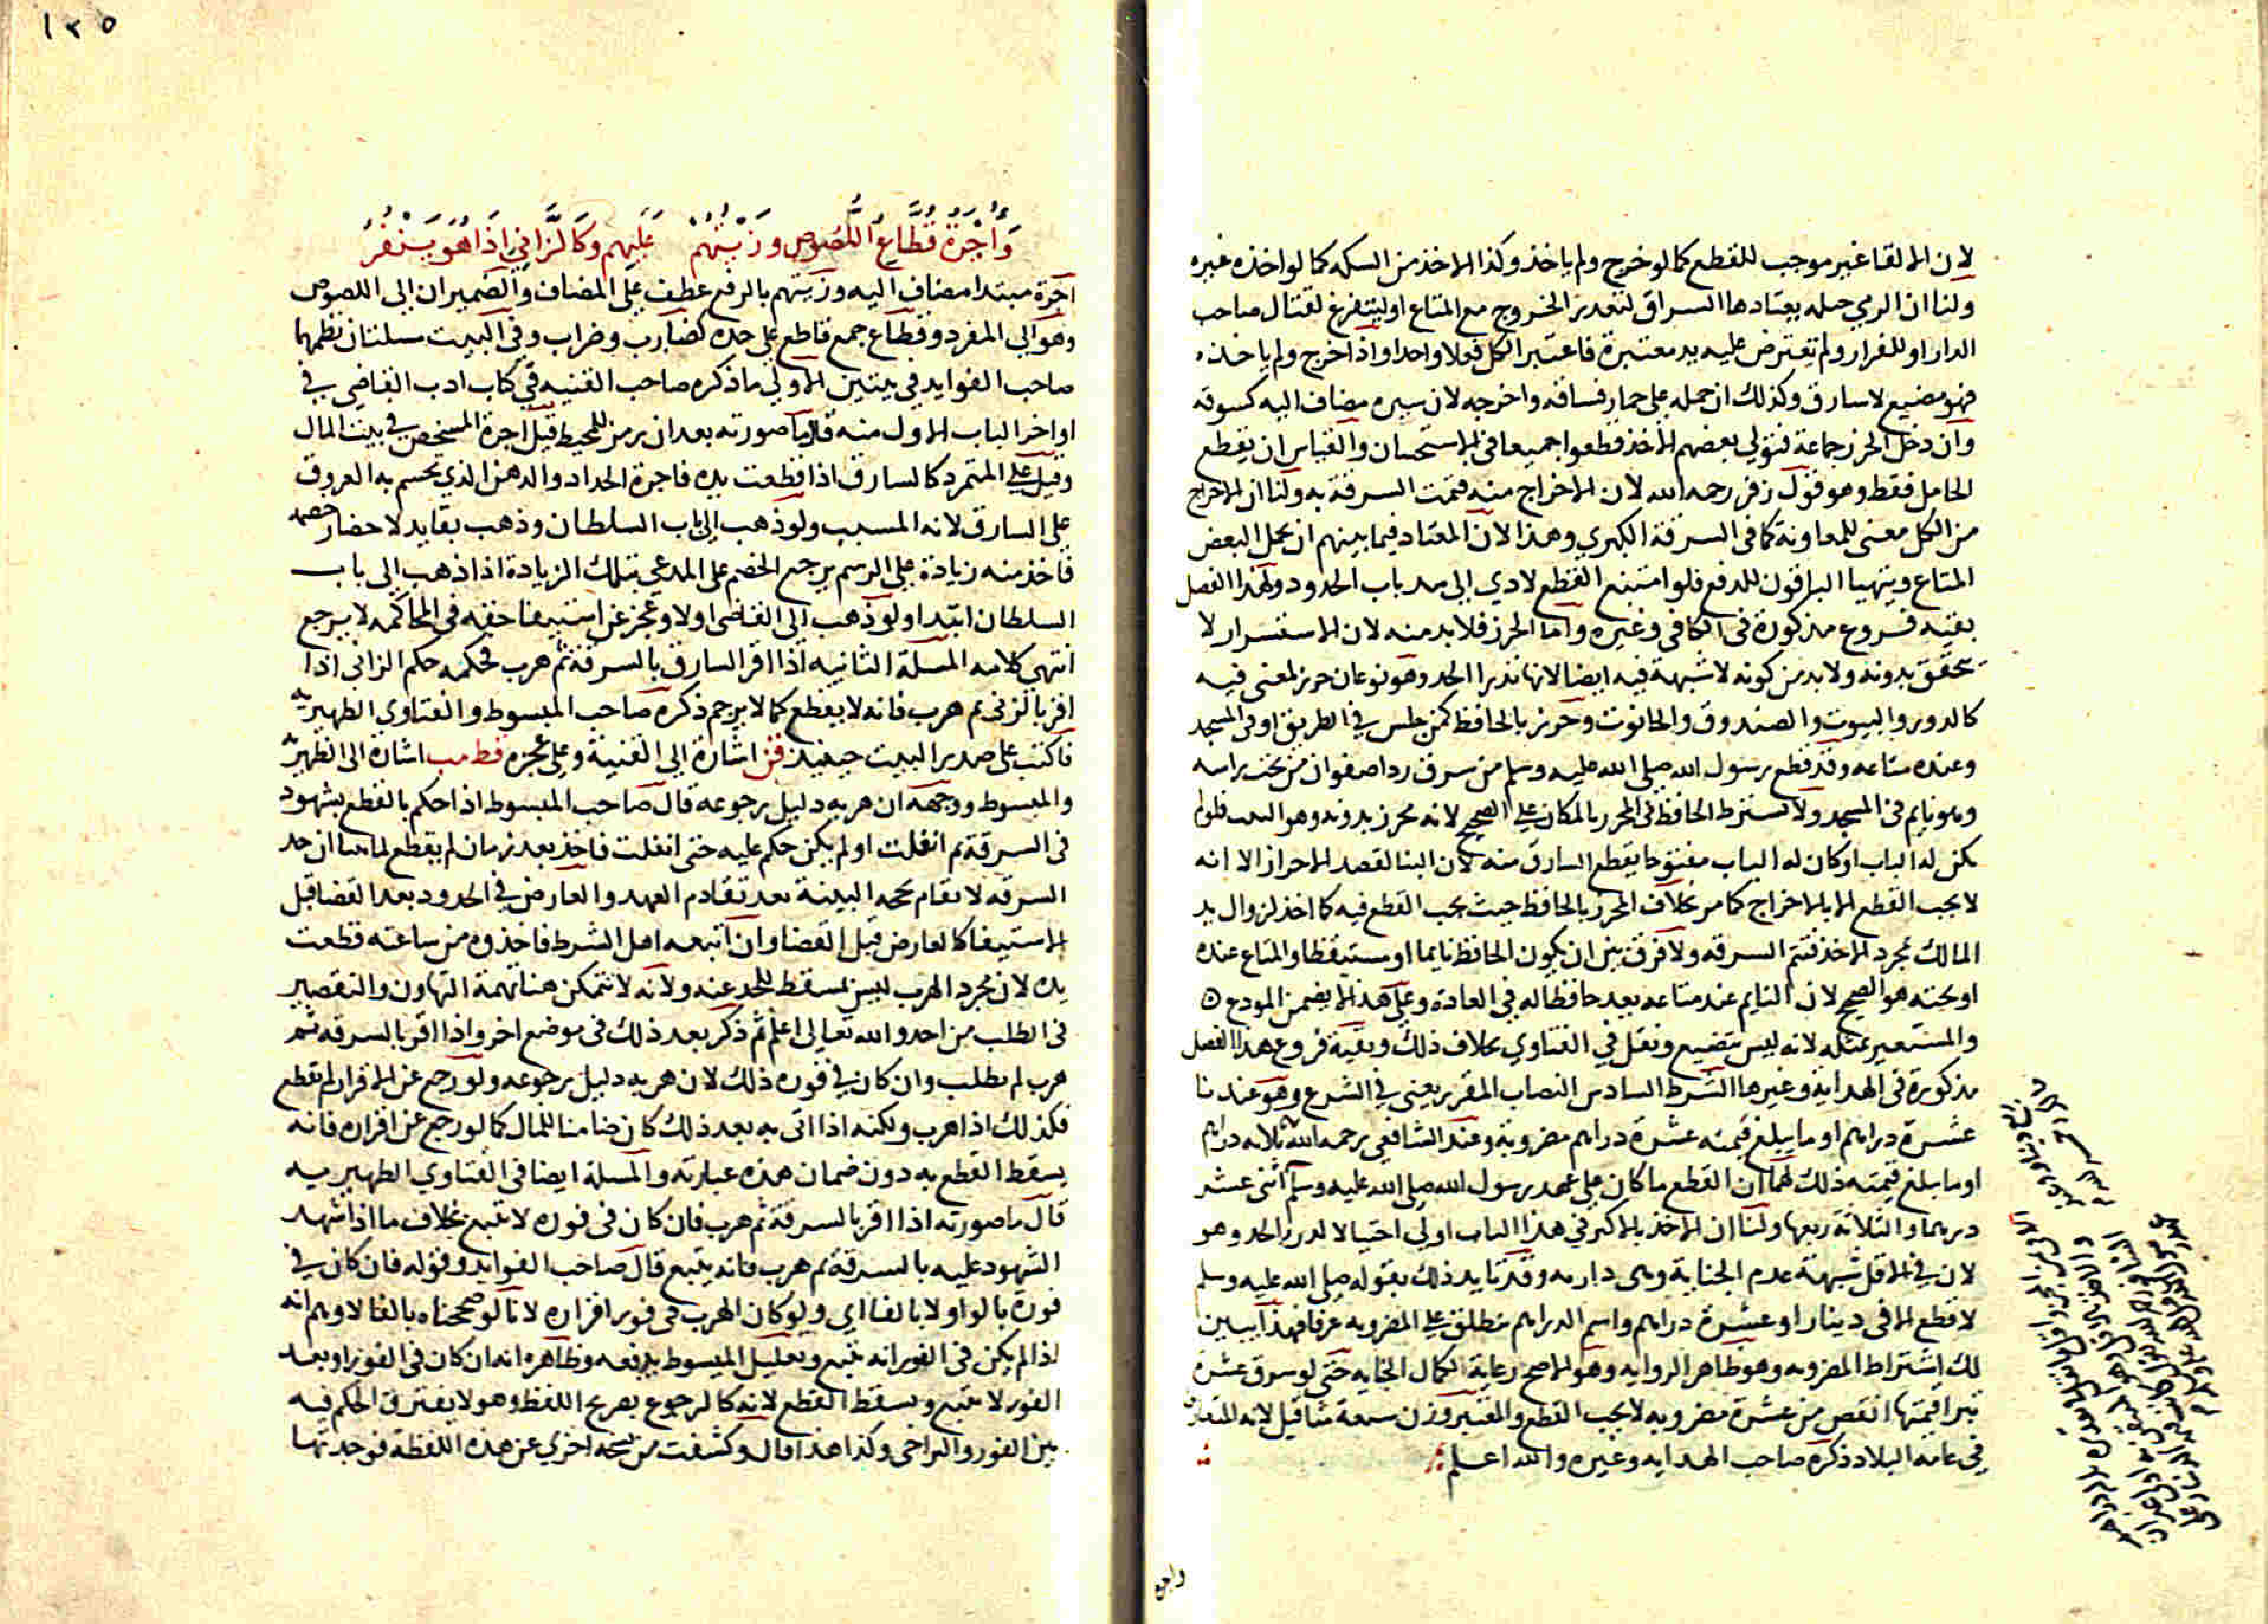 لان الالقا غير موجب للقطع كما لو خرج ولم ياخذ وكذا الاخذ من السكه كما لو اخذه غيره
ولنا ان الرمي حيله يعتادها السراق لتعذر الخروج مع المتاع او ليتفرغ لقتال صاحب
الدار او للفرار ولم تعترض عليه يد معتبرة فاعتبر الكل فعلا واحدا واذا اخرج ولم ياخذه
فهو مضيع لا سارق وكذلك ان حمله على حمار فساقه واخرجه لان سيره مضاف اليه كسوقه
وان دخل الحرز جماعة فتولي بعضهم الاخذ قطعوا جميعا في الاستحسان والقياس ان يقطع
الحامل فقط وهو قول زفر رحمه الله لان الاخراج منه فتمت السرقة به ولنا ان الاخراج
من الكل معنى للمعاونة كما في السرقة الكبري وهذا لان المعتاد فيما بينهم ان يحمل البعض
المتاع ويتهيا الباقون للدفع فلو امتنع القطع لادي الى سد باب الحدود ولهذا الفصل
بقيه فروع مذكورة في الكافي وغيره واما الحرز فلا بد منه لان الاستسرار لا
يتحقق بدونه ولا بد من كونه لا شبهة فيه ايضا لانها تدرا الحد وهو نوعان حرز لمعنى فيه
كالدور والبيوت والصندوق والحانوت وحرز بالحافظ كمن جلس في الطريق او في المسجد
وعنده متاعه وقد قطع رسول الله صلى الله عليه وسلم من سرق ردا صفوان من تحت راسه
وهو نايم في المسجد ولا يشترط الحافظ في المحرز بالمكان على الصحيح لانه محرز بدونه وهو البيت فلو لم
يكن له الباب او كان له الباب مفتوحا يقطع السارق منه لان البنا لقصد الاحراز الا انه
لا يجب القطع الا بالاخراج كما مر بخلاف المحرز بالحافظ حيث يجب القطع فيه كما اخذ لزوال يد
المالك بمجرد الاخذ فتتم السرقه ولا فرق بين ان يكون الحافظ نايما او مستيقظا والمتاع عنده
او تحته هو الصحيح لان النايم عند متاعه يعد حافظا له في العادة وعلى هذا لا يضمن المودع
والمستعير بمثله لانه ليس بتضييع ونقل في الفتاوي بخلاف ذلك وبقية فروع هذا الفصل
مذكورة في الهداية وغيرها الشرط السادس النصاب المقرر يعني في الشرع وهو عندنا
عشرة دراهم او ما يبلغ قيمته عشرة دراهم مضروبة وعند الشافعي رحمه الله ثلاثه دراهم
او ما بلغ قيمته ذلك لهما ان القطع ما كان على عهد رسول الله صلى الله عليه وسلم اثنى عشر
درهما والثلاثة ربعها ولنا ان الاخذ بالاكبر في هذا الباب اولي احتيالا لدرء الحد وهو
لان في الاقل شبهة عدم الجناية وهي دارءه وقد تايد ذلك بقوله صلى الله عليه وسلم
لا قطع الا في دينار او عشرة دراهم واسم الدراهم ينطلق على المضروبه عرفا فهذا يبين
لك اشتراط المضروبه وهو ظاهر الروايه وهو الاصح رعاية لكمال الجنايه حتى لو سرق عشرة
تبرا قيمتها انقص من عشرة مضروبه لا يجب القطع والمعتبر وزن سبعة مثاقيل لانه المتعارف
في عامه البلاد ذكره صاحب الهدايه وغيره والله اعلم
واجرة
١٣٥
وَأُجْرَةُ قُطَّاعِ اللُّصُوصِ وزَيْتُهُمْ عَلَيهم وَكَالزَّانِي اذَا هُوَ يَنْفُرُ
اجرة مبتدا مضاف اليه وزيتهم بالرفع عطف على المضاف والضميران الى اللصوص
وهو الى المفرد وقطاع جمع قاطع على حده كضارب وضراب وفي البيت مسلتان نظمهما
صاحب الفوايد في بيتين الاولي ما ذكره صاحب القنيه في كتاب ادب القاضي في
اواخر الباب الاول منه قال ما صورته بعد ان رمز للمحيط قيل اجرة المشخص في بيت المال
وقيل على المتمرد كالسارق اذا قطعت يده فاجرة الحداد والدهن الذي يحسم به العروق
على السارق لانه المسبب ولو ذهب الى باب السلطان وذهب بقايد لاحضار خصمه
فاخذ منه زيادة على الرسم يرجع الخصم على المدعي بتلك الزيادة اذا ذهب الى باب
السلطان ابتدا ولو ذهب الى القاضي اولا وعجز عن استيفا حقه في المحاكمه لا يرجع
انتهى كلامه المسلة الثانيه اذا اقر السارق بالسرقة ثم هرب فحكمه حكم الزاني اذا
اقر بالزنى ثم هرب فانه لا يقطع كما لا يرجم ذكره صاحب المبسوط والفتاوي الظهيريه
فاكتب على صدر البيت حينيذ قن اشارة الى القنية وعلى عجزه فظ مب اشارة الى الظهيرية
والمبسوط ووجهه ان هربه دليل رجوعه قال صاحب المبسوط اذا حكم بالقطع بشهود
في السرقة ثم انفلت او لم يكن حكم عليه حتى انفلت فاخذ بعد زمان لم يقطع لما بينا ان حد
السرقه لا يقام بحجه البينة بعد تقادم العهد والعارض في الحدود بعد القضا قبل
الاستيفا كالعارض قبل القضا وان اتبعه اهل الشرط فاخذوه من ساعته قطعت
يده لان مجرد الهرب ليس بمسقط للحد عنه ولانه لا تتمكن هنا تهمة التهاون والتقصير
في الطلب من احد والله تعالى اعلم ثم ذكر بعد ذلك في موضع اخر واذا اقر بالسرقه ثم
هرب لم يطلب وان كان في فوره ذلك لان هربه دليل رجوعه ولو رجع عن الاقرار لم تقطع
فكذلك اذا هرب ولكنه اذا اتى به بعد ذلك كان ضامنا للمال كما لو رجع عن اقراره فانه
يسقط القطع به دون ضمان هذه عبارته والمسلة ايضا في الفتاوي الظهيريه
قال ما صورته اذا اقر بالسرقة ثم هرب فان كان في فوره لا يتبع بخلاف ما اذا شهد
الشهود عليه بالسرقة ثم هرب فانه يتبع قال صاحب الفوايد وقوله فان كان في
فوره بالواو لا بالفا اي ولو كان الهرب في فور اقراره لانا لو صححناه بالفا لاوهم انه
اذا لم يكن في الفور انه يتبع وتعليل المبسوط يدفعه وظاهره انه ان كان في الفور او بعد
الفور لا يتبع ويسقط القطع لانه كالرجوع بصريح اللفظ وهو لا يفترق الحكم فيه
بين الفور والتراخي وكذا هذا قال وكشفت من نسخه اخري عن هذه اللفظة فوجدتها